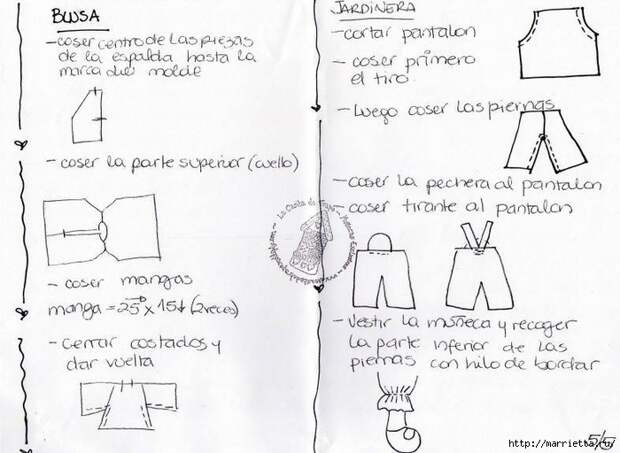 BLUSA
- coser centro de las piezas
de la espalda hasta la
marca del molde
- coser la parte superior (cuello)
- coser mangas
manga = 25 x 15 (2 veces)
- cerrar costados y
dar vuelta
JARDINERA
- cortar pantalon
- coser primero
el tiro.
- Luego coser las piernas
- coser la pechera al pantalon
- coser tirante al pantalon
- Vestir la muñeca y recoger
la parte inferior de las
piernas con hilo de bordar
5/5
http://marrietta.ru